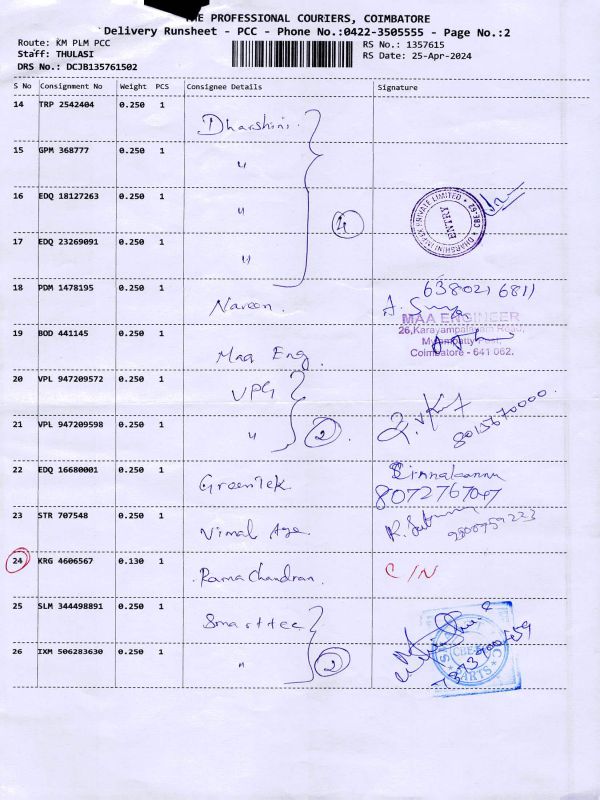 THE PROFESSIONAL COURIERS, COIMBATORE
Delivery Runsheet - PCC - Phone No.:0422-3505555 - Page No.:2
Route: KM PLM PCC
RS No.: 1357615
Staff: THULASI
RS Date: 25-Apr-2024
DRS No.: DCJB135761502
S No Consignment No Weight PCS Consignee Details Signature
14 TRP 2542404 0.250 1 Dharshini
15 GPM 368777 0.250 1 "
16 EDQ 18127263 0.250 1 "
4
DHARSHINI IMPEX PRIVATE LIMITED * CBE-62 *
ENTRY
17 EDQ 23269091 0.250 1 "
18 PDM 1478195 0.250 1 Naveen. 638021 6811
A. Surya
19 BOD 441145 0.250 1 Maa Eng.
MAA ENGINEER
26,Karayampalayam Road,
Mylampatty Post,
Coimbatore - 641 062.
20 VPL 947209572 0.250 1 VPG
21 VPL 947209598 0.250 1 " 2
8015670000
22 EDQ 16680001 0.250 1 Greentek
8072767047
23 STR 707548 0.250 1 Vimal Age.
24 KRG 4606567 0.130 1 Rama Chandran. C/N
25 SLM 344498891 0.250 1 Smarttec
26 IXM 506283630 0.250 1 " 2